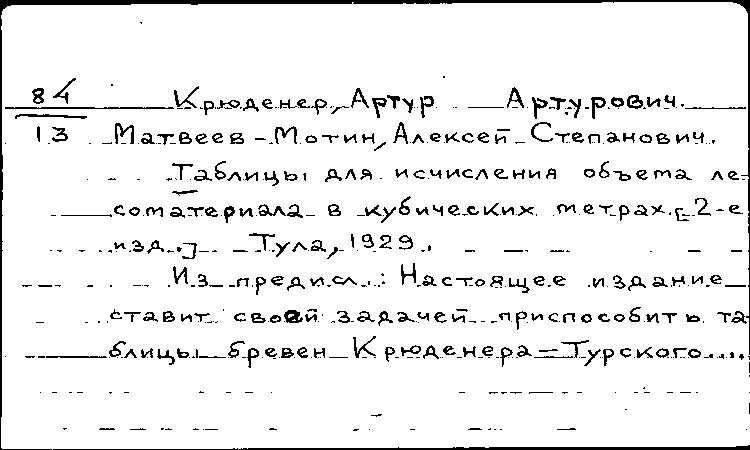 84 Крюденер, Артур Артурович.
13 Матвеев-Мотин, Алексей Степанович.
Таблицы для исчисления объема ле-
соматериала в кубических метрах. [2-е
изд.] Тула, 1929.
Из предисл.: Настоящее издание
ставит своей задачей приспособить та-
блицы бревен Крюденера-Турского....